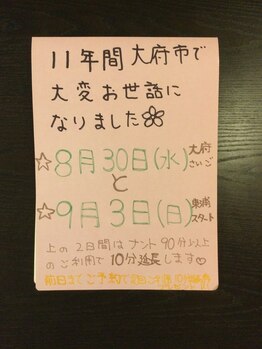 11年間大府市で
大変お世話に
なりました
☆8月30日(水)大府さいご
と
☆9月3日(日)東浦スタート
上の2日間はナント90分以上
のご利用で10分延長します♡
前日までご予約で